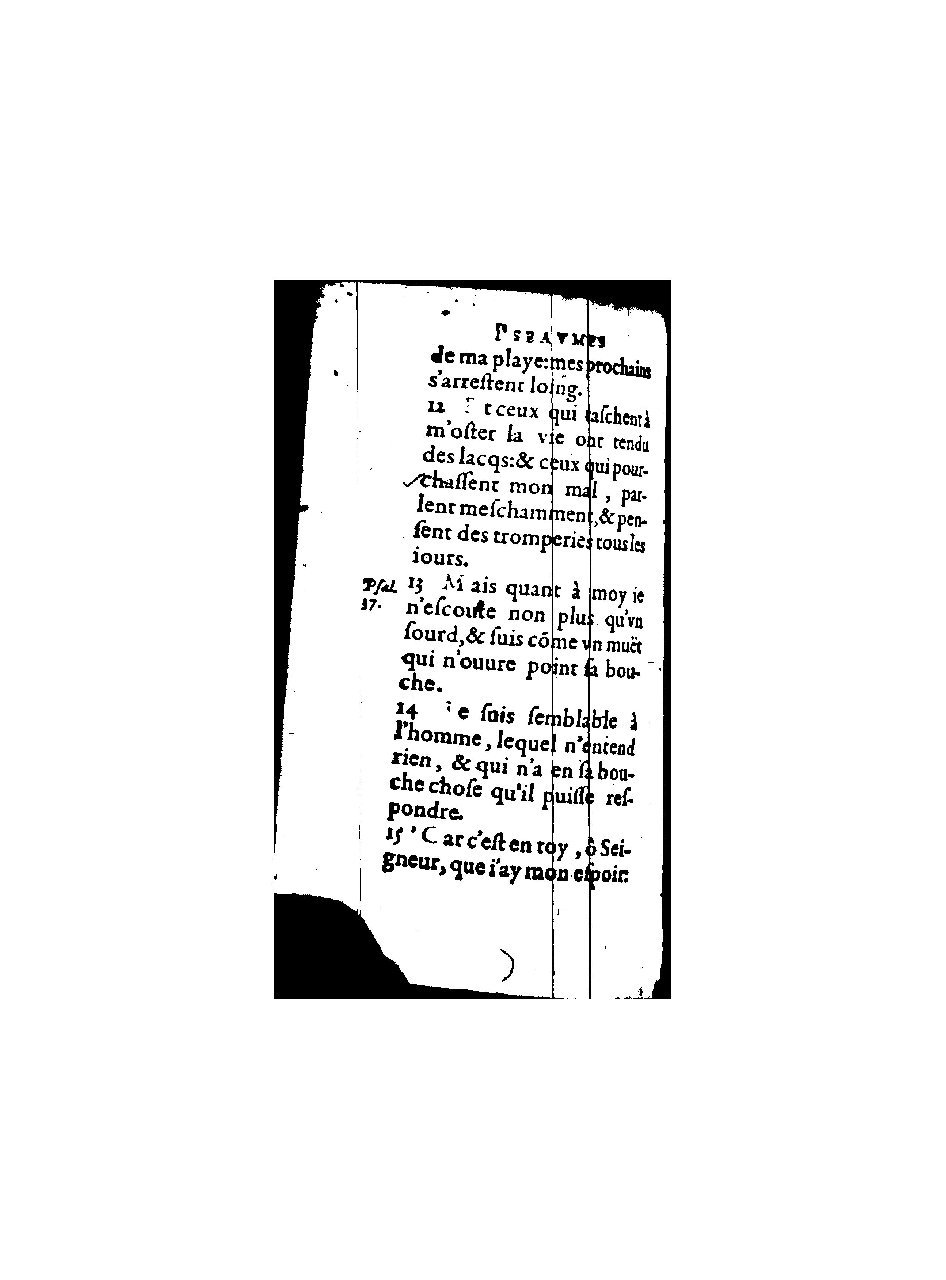 PSEAVMES
de ma playe:mes prochains
s'arreſtent loing.
12 Et ceux qui taſchent à
m'oſter la vie ont tendu
des lacqs:& ceux qui pour-
chaſſent mon mal , par-
lent meſchamment,& pen-
ſent des tromperies tous les
iours.
Pſal. 13 Mais quant à moy ie
37. n'eſcoute non plus qu'vn
ſourd,& ſuis cõme vn muët
qui n'ouure point ſa bou-
che.
14 Ie ſuis ſemblable à
l'homme, lequel n'entend
rien, & qui n'a en ſa bou-
che choſe qu'il puiſſe reſ-
pondre.
15 Car c'eſt en toy , ô Sei-
gneur, que i'ay mon eſpoir: